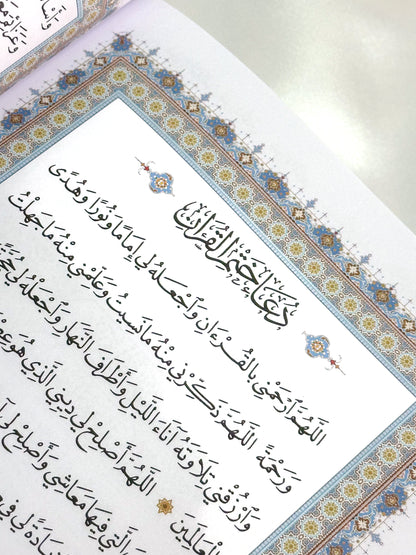 دعاء ختم القرآن
اللهم ارحمني بالقرءان واجعله لي إماما ونورا وهدى
ورحمة اللهم ذكرني منه ما نسيت وعلمني منه ما جهلت
وارزقني تلاوته آناء الليل وأطراف النهار واجعله لي
العالمين اللهم أصلح لي ديني الذي هو
التي فيها معاشي وأصلح لي
زيادة لي في